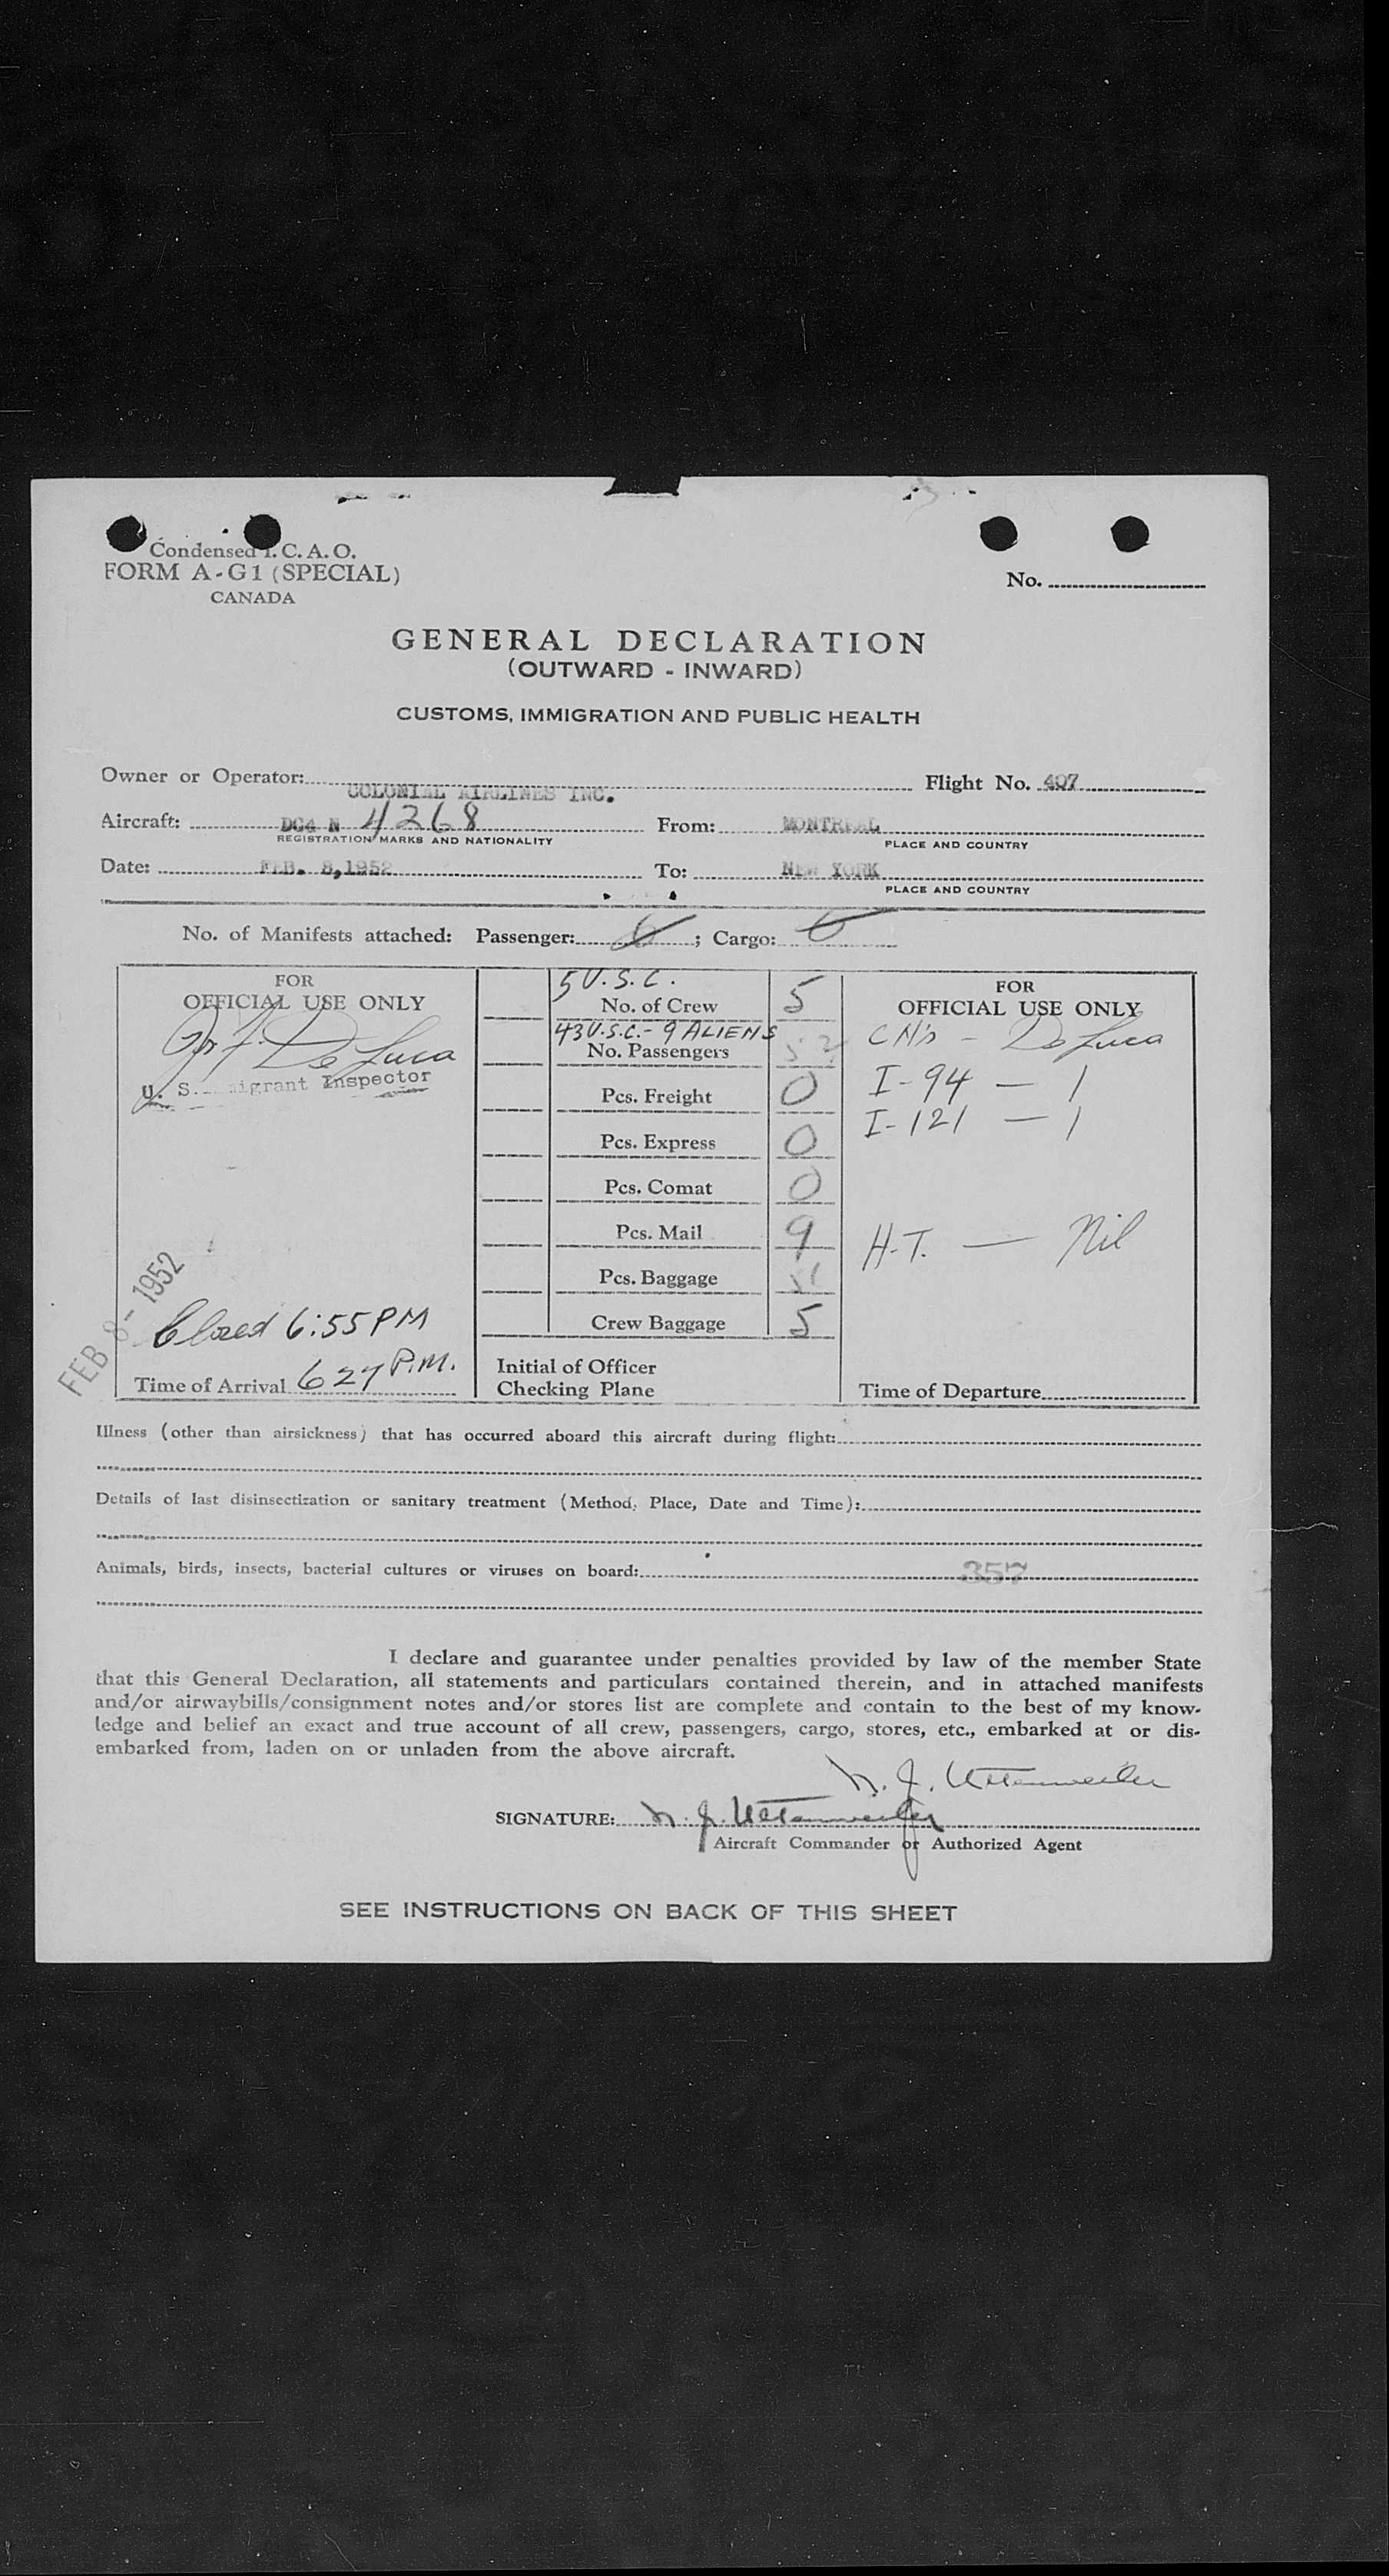 Condensed I. C. A. O.
FORM A-G1 (SPECIAL)
CANADA
No.
GENERAL DECLARATION
(OUTWARD - INWARD)
CUSTOMS, IMMIGRATION AND PUBLIC HEALTH
Owner or Operator: COLONIAL AIRLINES INC. Flight No. 407
Aircraft: DC4 N 4268 From: MONTREAL
REGISTRATION MARKS AND NATIONALITY PLACE AND COUNTRY
Date: FEB. 8,1952 To: NEW YORK
PLACE AND COUNTRY
No. of Manifests attached: Passenger: 6 ; Cargo:
FOR
OFFICIAL USE ONLY
De Luca
U. S. Inspector
FEB 8- 1952
Closed 6:55 PM
Time of Arrival 6 27 P.M.
5 U.S.C.
No. of Crew 5
43 U.S.C. - 9 ALIENS
No. Passengers 52
Pcs. Freight 0
Pcs. Express 0
Pcs. Comat 0
Pcs. Mail 9
Pcs. Baggage 51
Crew Baggage 5
Initial of Officer
Checking Plane
FOR
OFFICIAL USE ONLY
CN's - De Luca
I-94 — 1
I-121 — 1
H.T. — Nil
Time of Departure
Illness (other than airsickness) that has occurred aboard this aircraft during flight:
Details of last disinsectization or sanitary treatment (Method, Place, Date and Time):
Animals, birds, insects, bacterial cultures or viruses on board: 357
I declare and guarantee under penalties provided by law of the member State
that this General Declaration, all statements and particulars contained therein, and in attached manifests
and/or airwaybills/consignment notes and/or stores list are complete and contain to the best of my know-
ledge and belief an exact and true account of all crew, passengers, cargo, stores, etc., embarked at or dis-
embarked from, laden on or unladen from the above aircraft.
N. J. Uttenweiler
SIGNATURE: N. J. Uttenweiler
Aircraft Commander or Authorized Agent
SEE INSTRUCTIONS ON BACK OF THIS SHEET